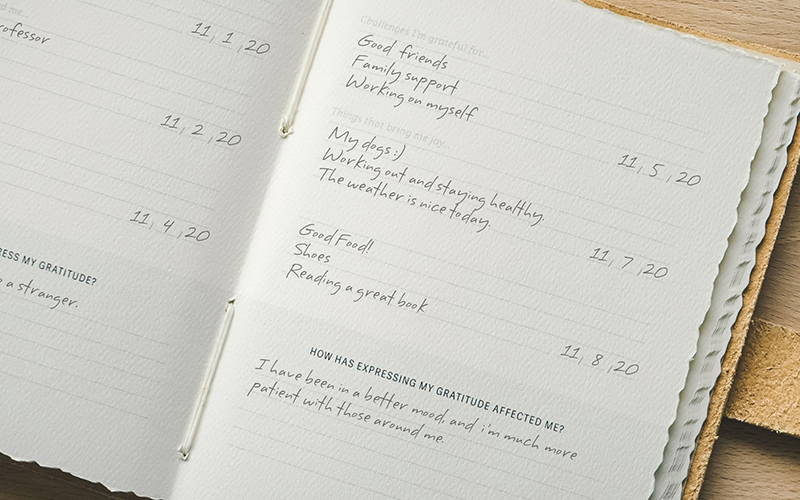 ofessor
11, 1, 20
11, 2, 20
11, 4, 20
ESS MY GRATITUDE?
a stranger.
Challenges I'm grateful for...
Good friends
Family support
Working on myself
11, 5, 20
Things that bring me joy...
My dogs :)
Working out and staying healthy.
The weather is nice today.
11, 7, 20
Good Food!
Shoes
Reading a great book
11, 8, 20
HOW HAS EXPRESSING MY GRATITUDE AFFECTED ME?
I have been in a better mood, and i'm much more
patient with those around me.